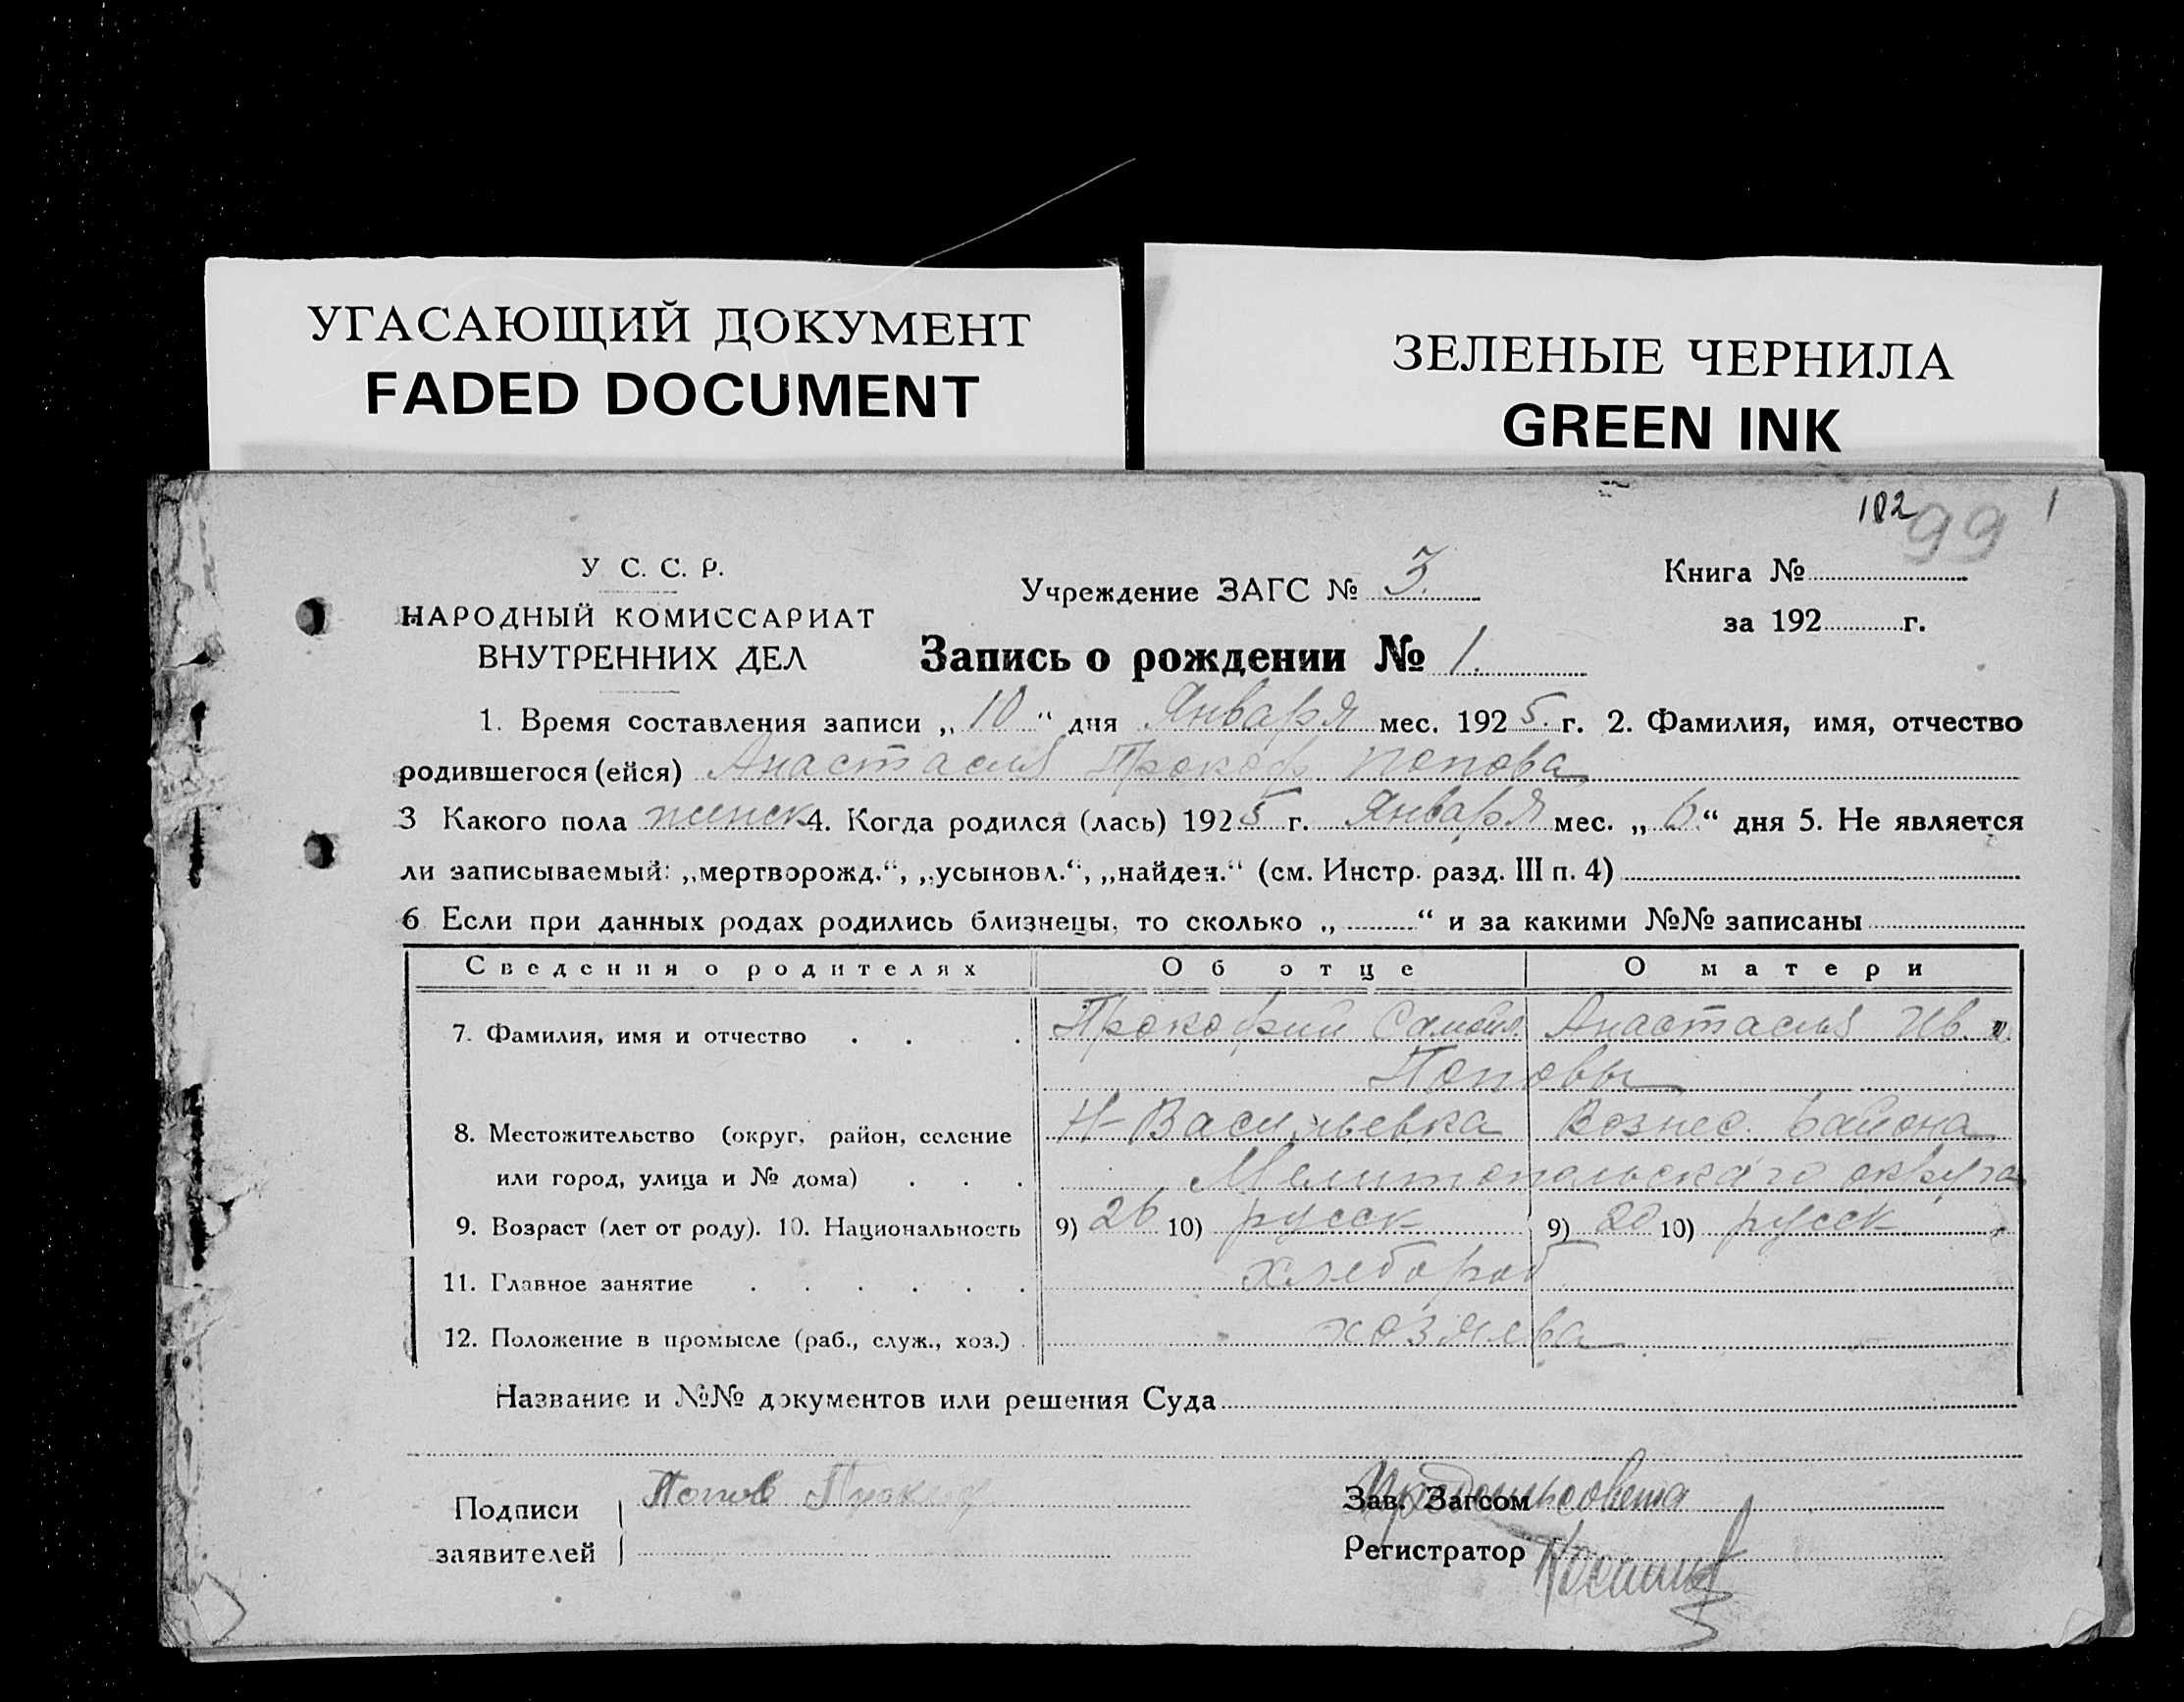 УГАСАЮЩИЙ ДОКУМЕНТ
FADED DOCUMENT
ЗЕЛЕНЫЕ ЧЕРНИЛА
GREEN INK
102 99 1
У С. С. Р.
НАРОДНЫЙ КОМИССАРИАТ
ВНУТРЕННИХ ДЕЛ
Учреждение ЗАГС № 3.
Книга №
за 192 г.
Запись о рождении № 1.
1. Время составления записи „ 10 “ дня Января мес. 192 5. г. 2. Фамилия, имя, отчество
родившегося (ейся) Анастасия Прокоф Попова
3 Какого пола женск 4. Когда родился (лась) 192 5 г. Января мес. „ 6 “ дня 5. Не является
ли записываемый: „мертворожд.“, „усыновл.“, „найден.“ (см. Инстр. разд. III п. 4)
6 Если при данных родах родились близнецы, то сколько „ “ и за какими №№ записаны
Сведения о родителях Об отце О матери
7. Фамилия, имя и отчество Прокофий Самойл. Анастасия Ив.
Поповы
8. Местожительство (округ, район, селение Н-Васильевка Вознес. района
или город, улица и № дома) Мелитопольского округа
9. Возраст (лет от роду). 10. Национальность 9) 26 10) русск 9) 20 10) русск
11. Главное занятие хлебороб
12. Положение в промысле (раб., служ., хоз.) хозяева
Название и №№ документов или решения Суда
Подписи Попов
заявителей
Зав. Загсом
Регистратор